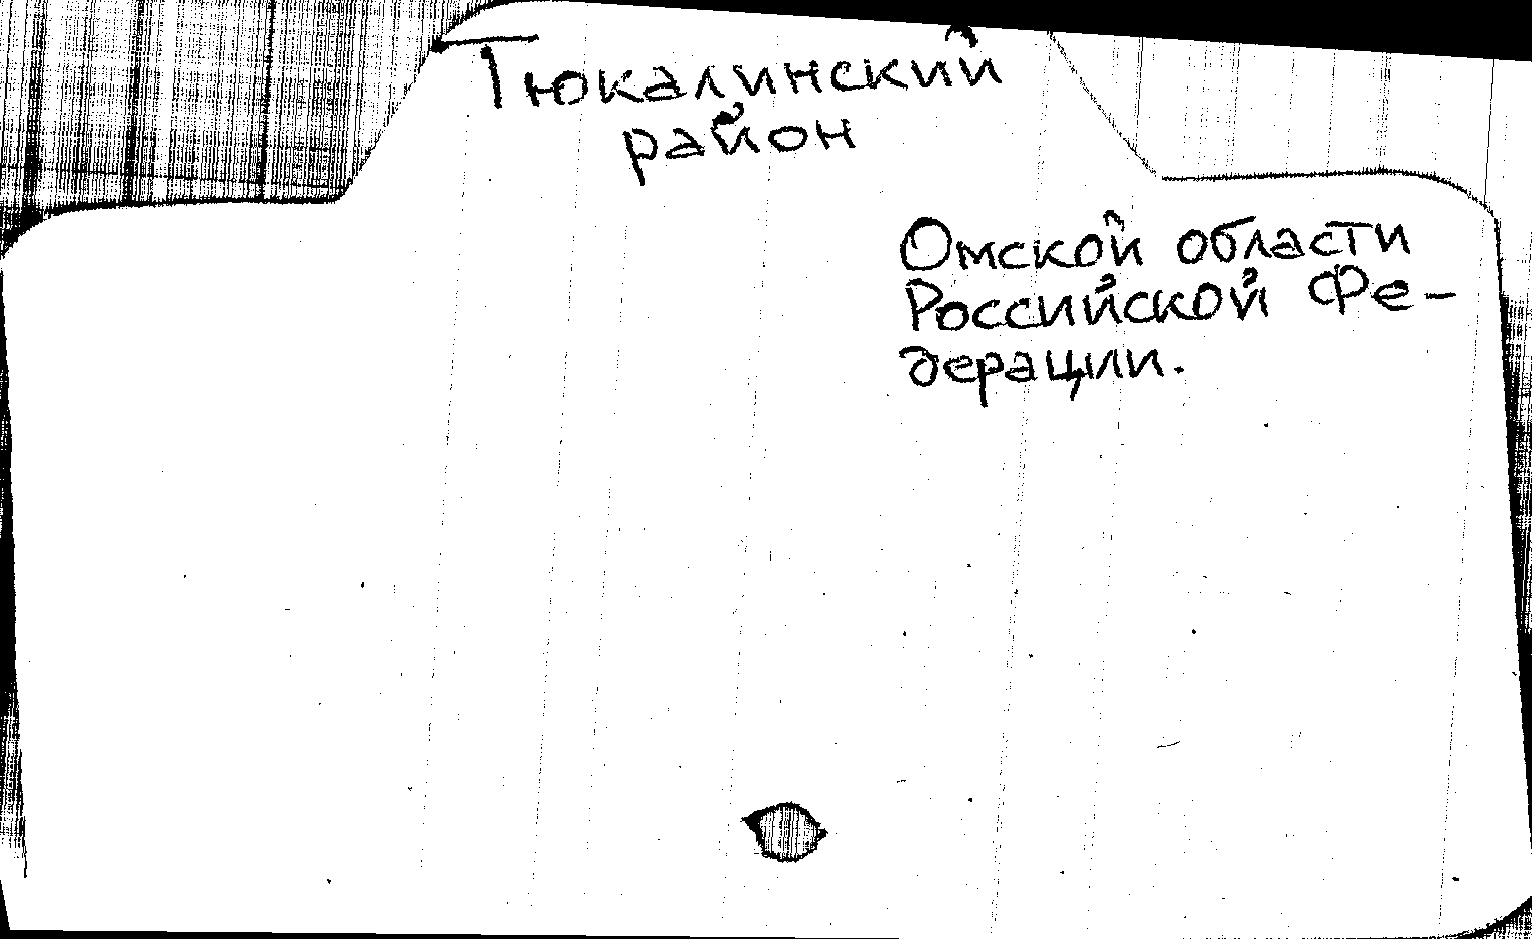 Тюкалинский
район
Омской области
Российской Фе-
дерации.